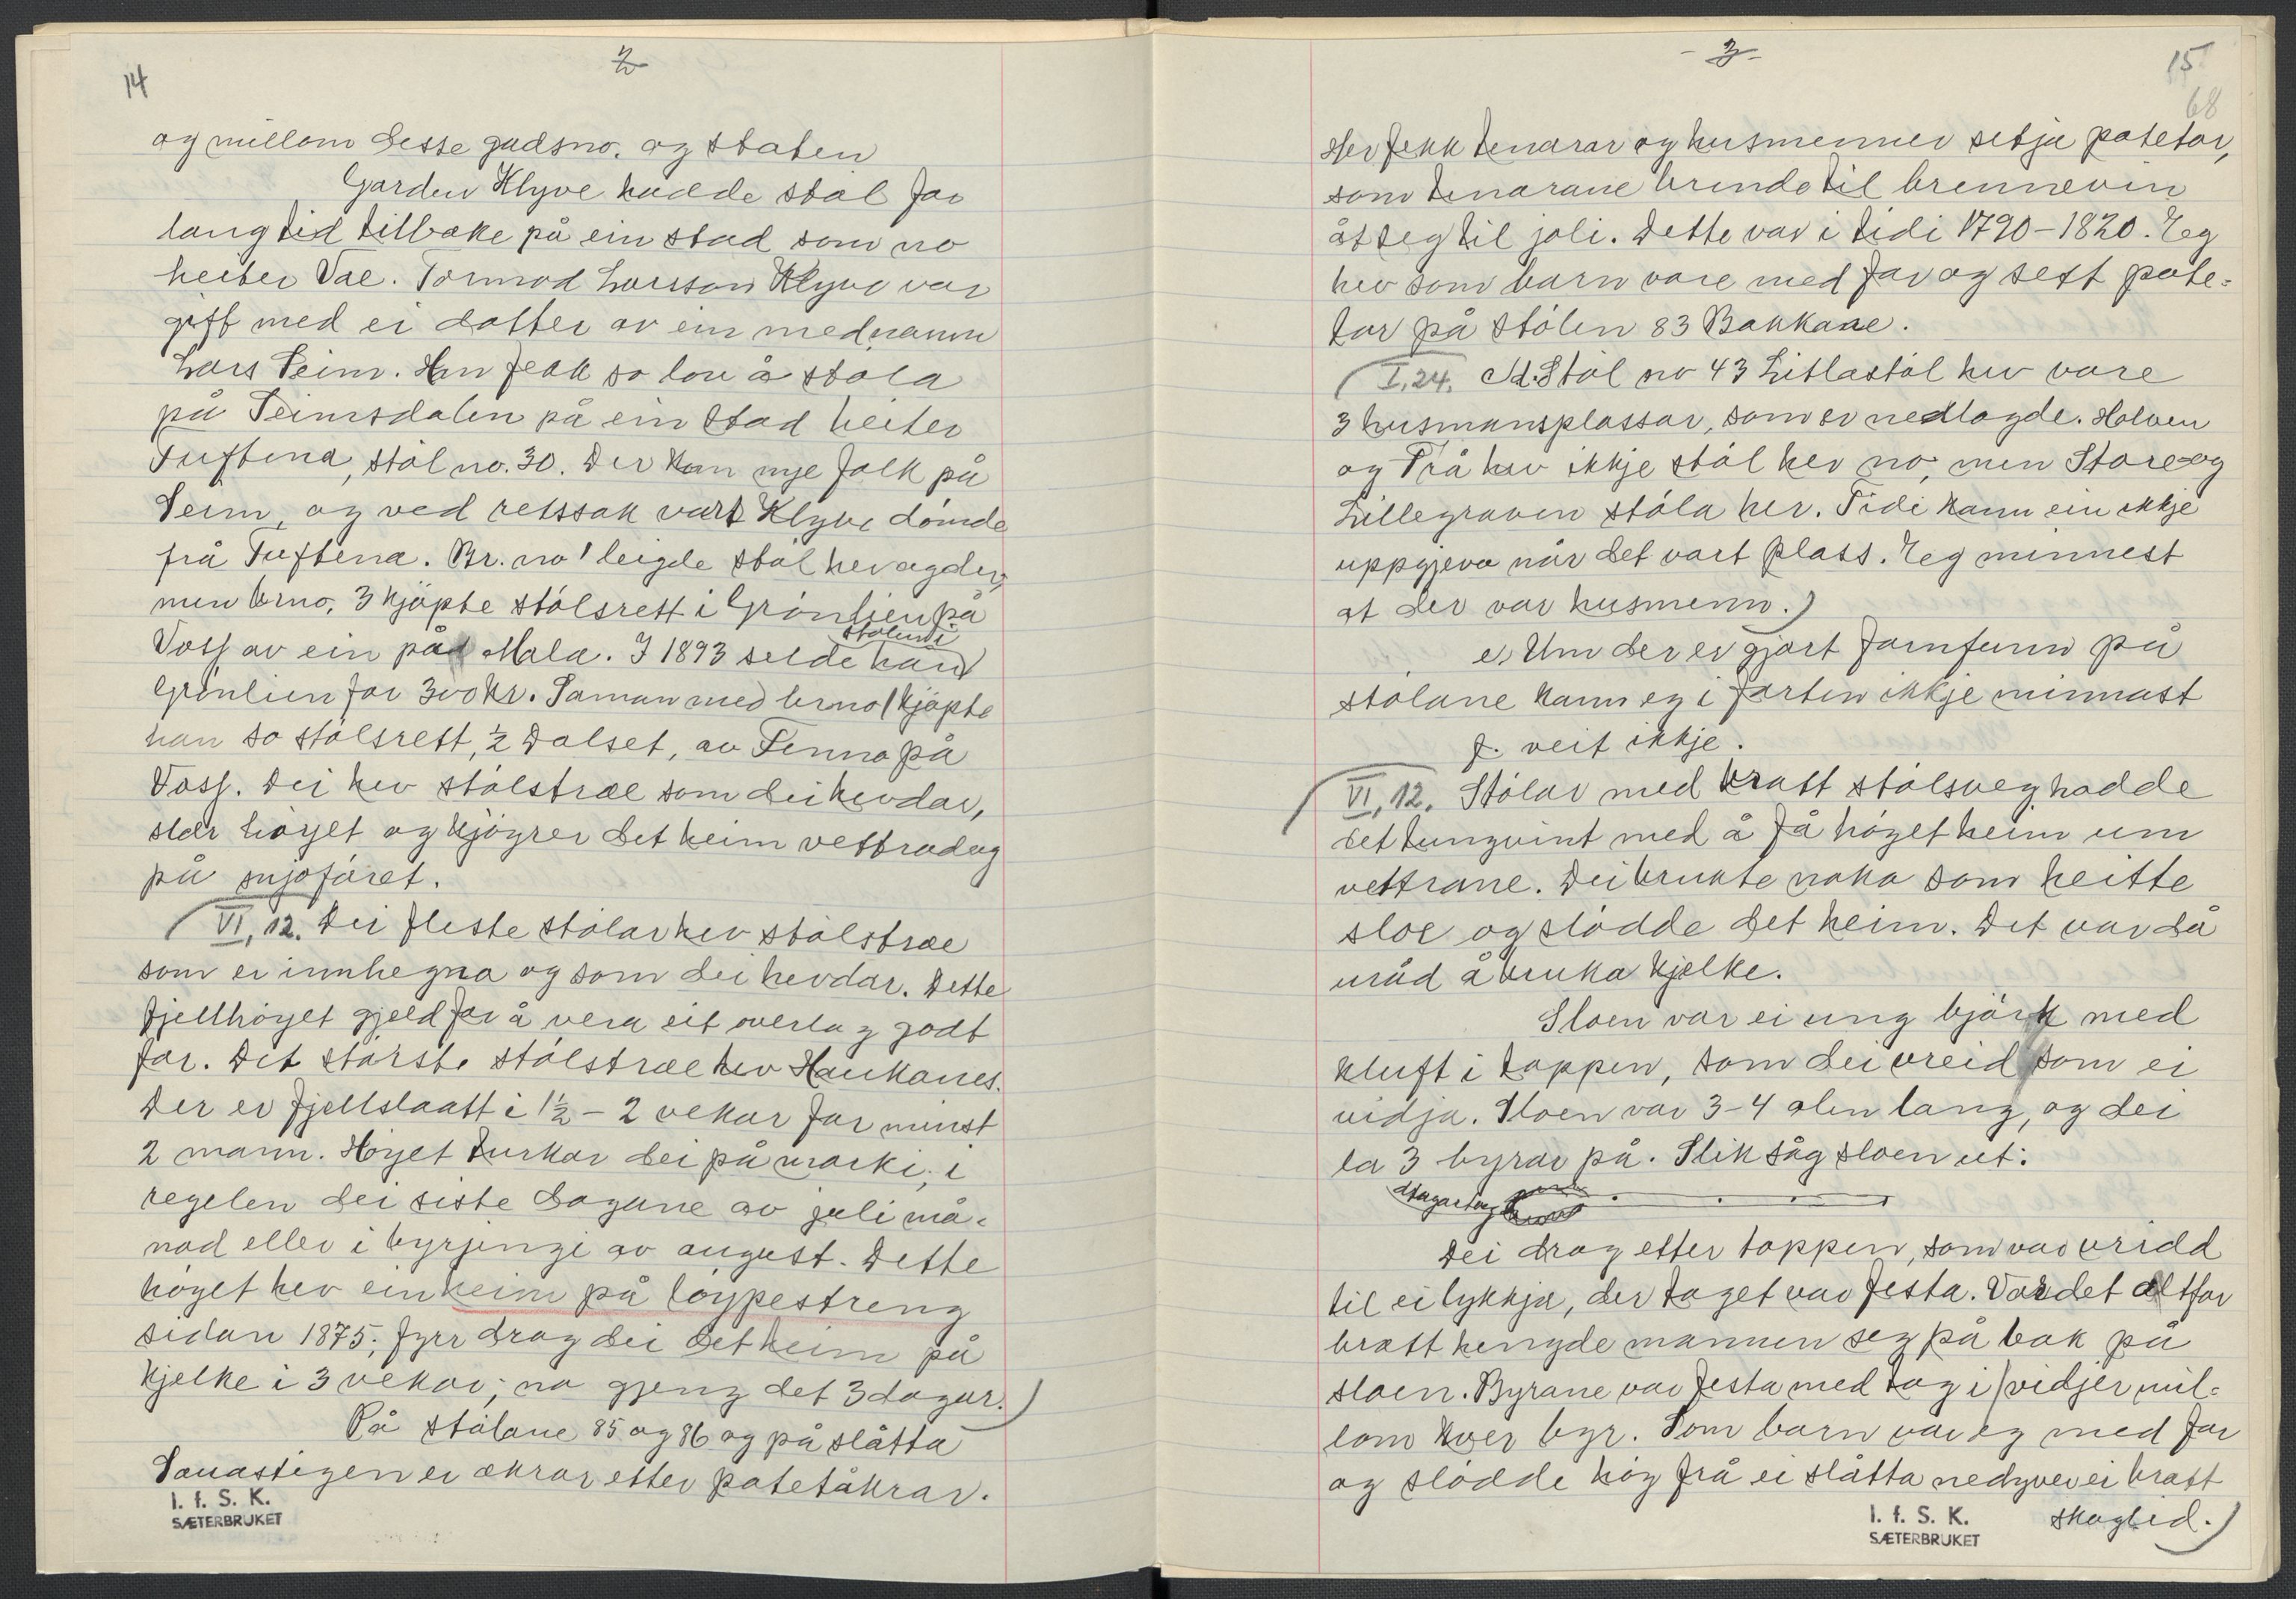 14
2
og millom desse gadsno. og staten
Garden Klyve hadde stöl for
lang tid tilbake på ein stad som no
heiter Vae. Tormod Larsson Klyve var
gift med ei dotter av ein mednamn
Lars Seim. Han fekk so lov å støla
på Seimsdalen på ein stad heiter
Tuftena, stöl no. 30. Der kom nye folk på
Seim, og ved rettssak vart Klyve dömde
frå Tuftena. Br. no 1 leigde stöl her og der,
men brno. 3 kjöpte stölsrett i Grönlien på
Voss av ein på Mala. I 1893 selde han stölen i
Grönlien for 300 kr. Saman med brno 1 kjöpte
han so stölsrett, ½ Dalset, av Finno på
Voss. Dei hev stölstræ som dei hevdar,
slær höyet og kjöyrer det heim vettradag
på snjoföret.
VI, 12. Dei fleste stölar hev stölstræ
som er innhegna og som dei hevdar. Dette
fjellhöyet gjeld for å vera eit overlag godt
for. Det störste stölstræ hev Haukanes.
Der er fjellslaatt i 1½ - 2 vekor for minst
2 mann. Höyet turkar dei på marki, i
regelen dei siste dagane av juli må-
nad eller i byrjingi av august. Dette
höyet hev ein heim på löypestreng
sidan 1875; fyrr drog dei det heim på
kjelke i 3 vekor; no gjeng det 3 dagar.)
På stölane 85 og 86 og på slåtta
Sauastigen er åkrar etter potetåkrar.
I. f. S. K.
SÆTERBRUKET
- 3 -
15
68
Her fekk tenarar og husmenner setja potetor,
som tenarane brende til brennevin
åt seg til joli. Dette var i tidi 1790-1820. Eg
hev som barn vore med far og sett pote-
tor på stölen 83 Bakkane.
(I, 24. d. Stöl no 43 Litlastöl hev vore
3 husmansplassar, som er nedlagde. Holven
og Trå hev ikkje stöl her no, men Store- og
Lillegraven stöla her. Tidi kann ein ikkje
uppgjeva når det vart plass. Eg minnest
at der var husmenn.)
e, Um der er gjort fornfunn på
stölane kann eg i farten ikkje minnast
f. veit ikkje.
VI, 12. Stölar med bratt stölsveg hadde
det tungvint med å få höyet heim um
vettrane. Dei brukte noko som heitte
sloe og slödde det heim. Det var då
uråd å bruka kjelke.
Sloen var ei ung björk med
kluft i toppen, som dei vreid som ei
vidja. Sloen var 3-4 alen lang, og dei
la 3 byrar på. Slik såg sloen ut:
dragartog
Dei drog etter toppen, som var vridd
til ei lykkja, der toget var festa. Var det altfor
bratt hengde mannen seg på bak på
sloen. Byrane var festa med tog i vidjer mil-
lom kver byr. Som barn var eg med far
og slödde höy frå ei slåtta nedyver ei bratt
skoglid.)
I. f. S. K.
SÆTERBRUKET